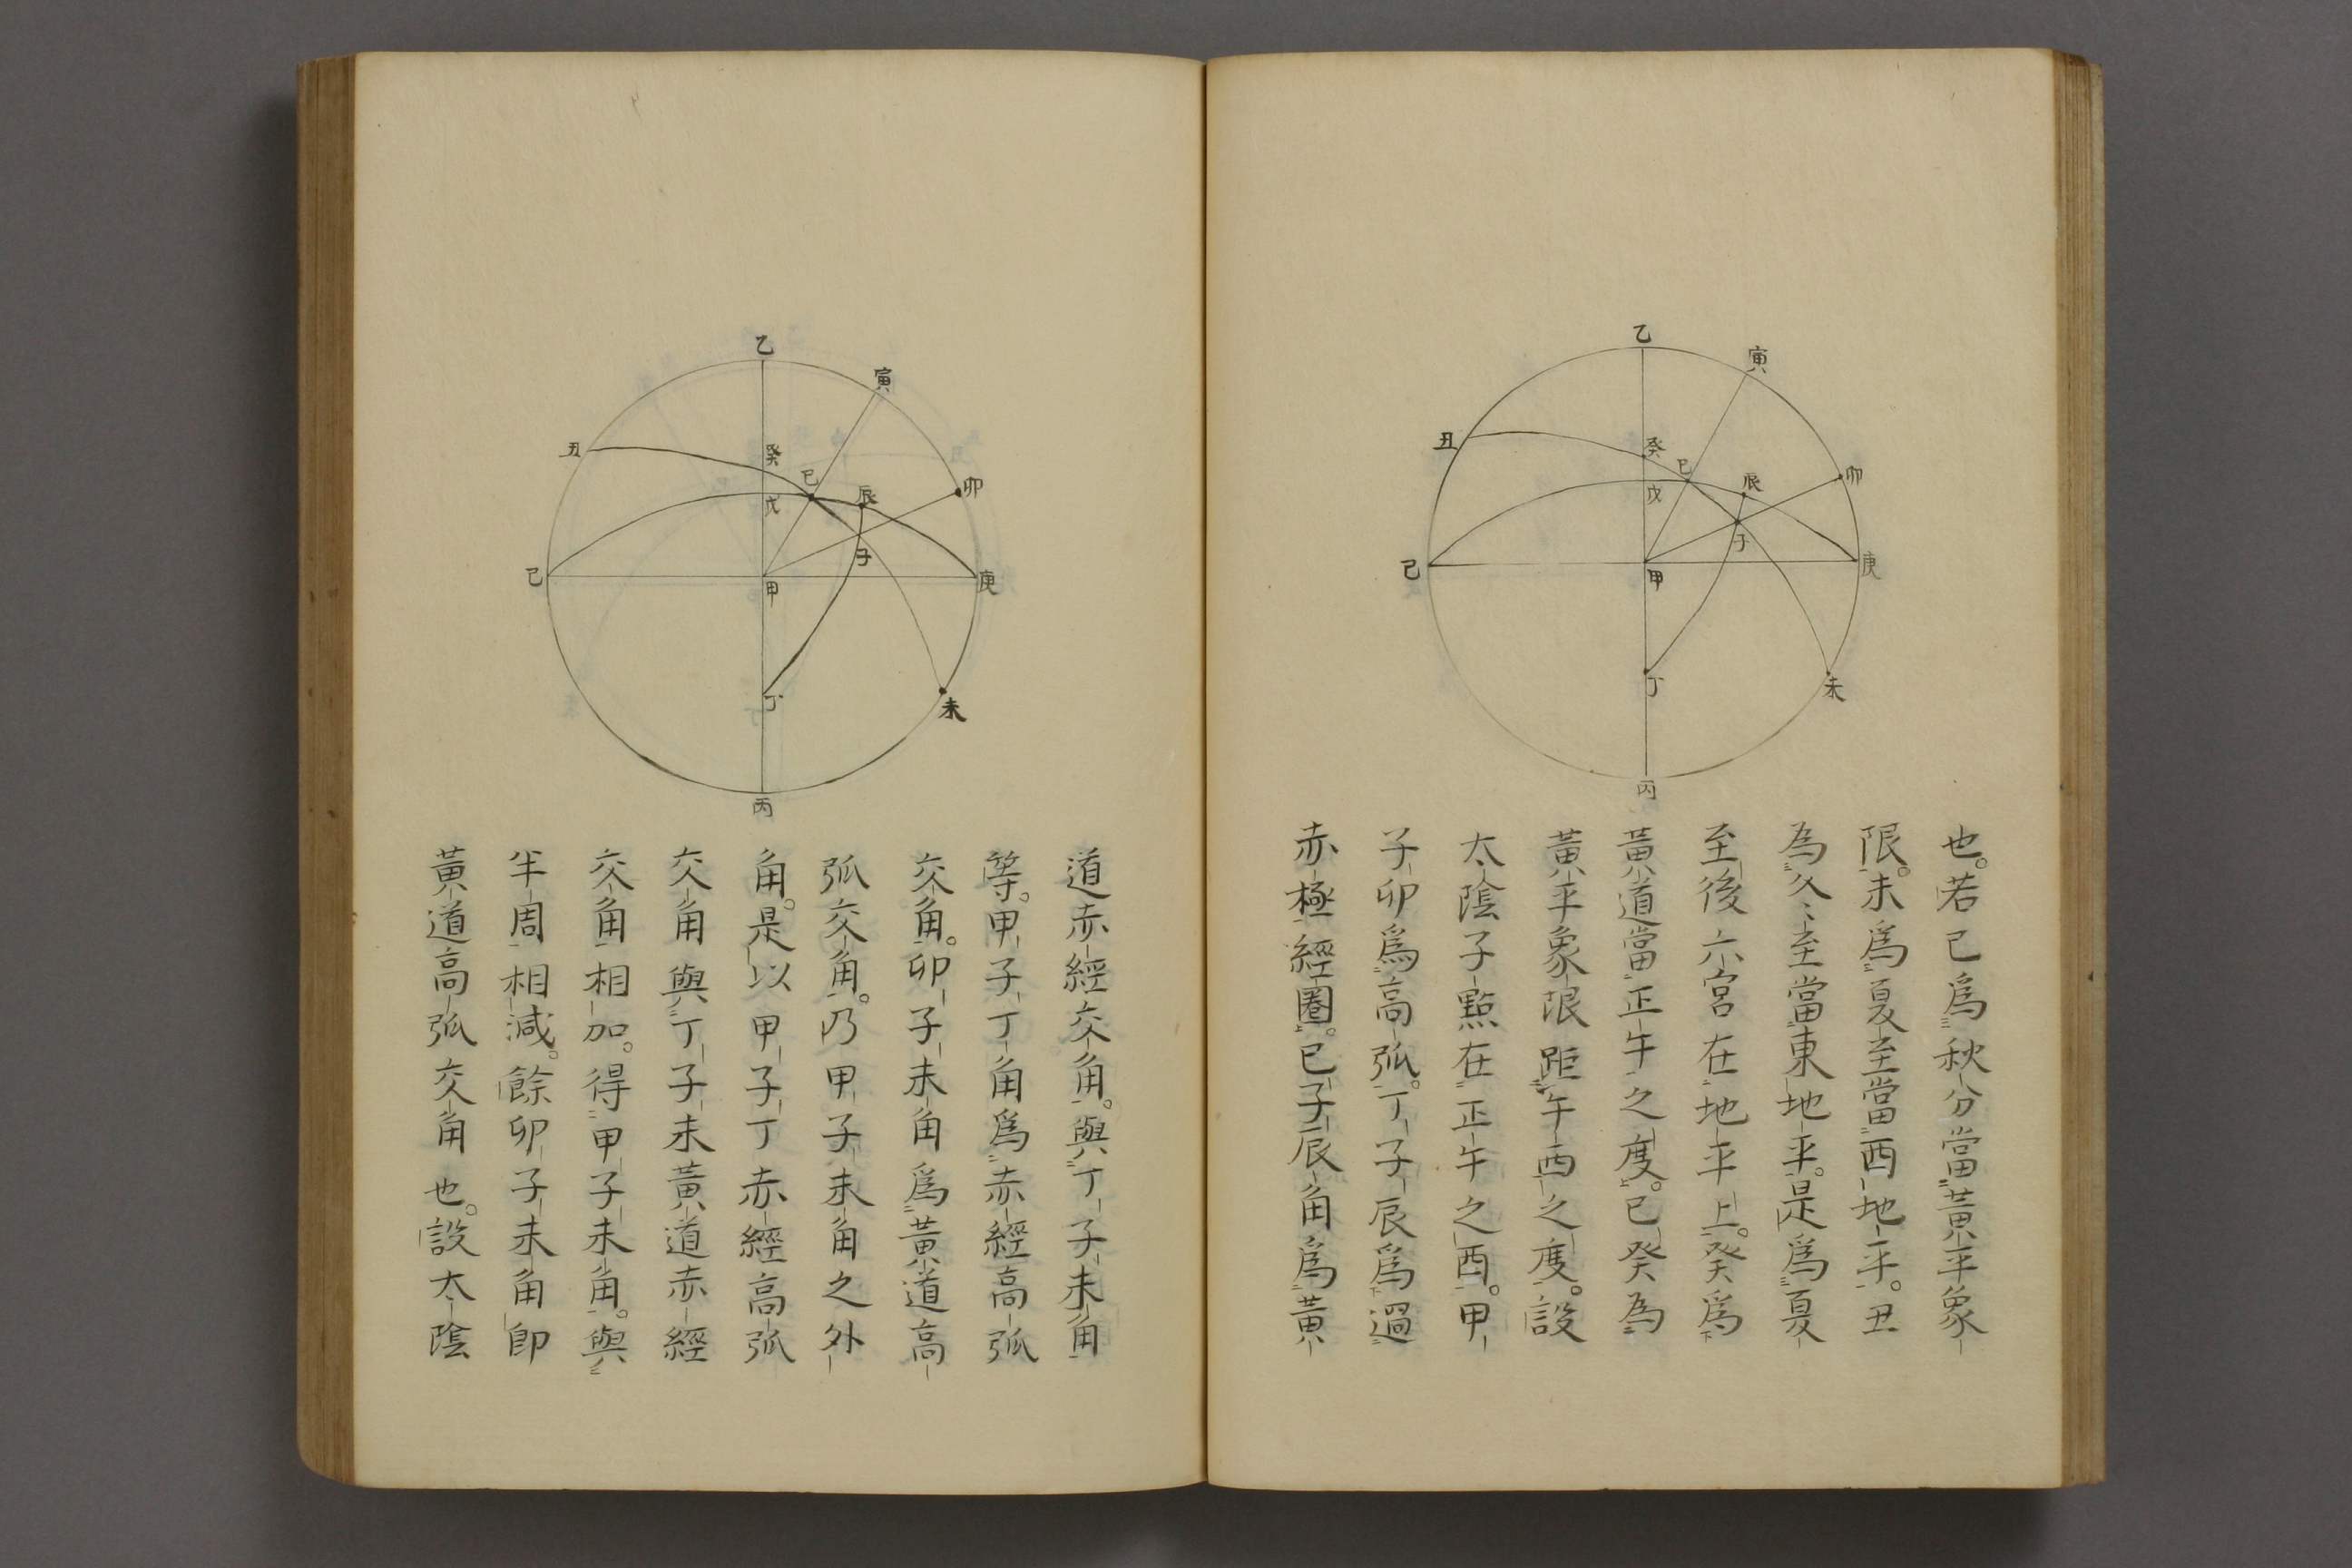 乙
寅
丑
癸
巳
辰
卯
戊
子
己
甲
庚
丁
未
丙
也。若巳爲秋分當黃平象
限。未爲夏至當西地平。丑
為冬至當東地平。是爲夏
至後六宮在地平上。癸爲
黃道當正午之度。巳癸為
黃平象限距午西之度。設
太陰子點在正午之酉。甲
子卯爲高弧。丁子辰爲過
赤極經圈。巳子辰角爲黃
乙
寅
丑
癸
巳
辰
卯
戊
子
己
甲
庚
丁
未
丙
道赤經交角。與丁子未角
等。甲子丁角爲赤經高弧
交角。卯子未角爲黃道高
弧交角。乃甲子未角之外
角。是以甲子丁赤經高弧
交角與丁子未黃道赤經
交角相加。得甲子未角。與
半周相減。餘卯子未角即
黃道高弧交角也。設太陰